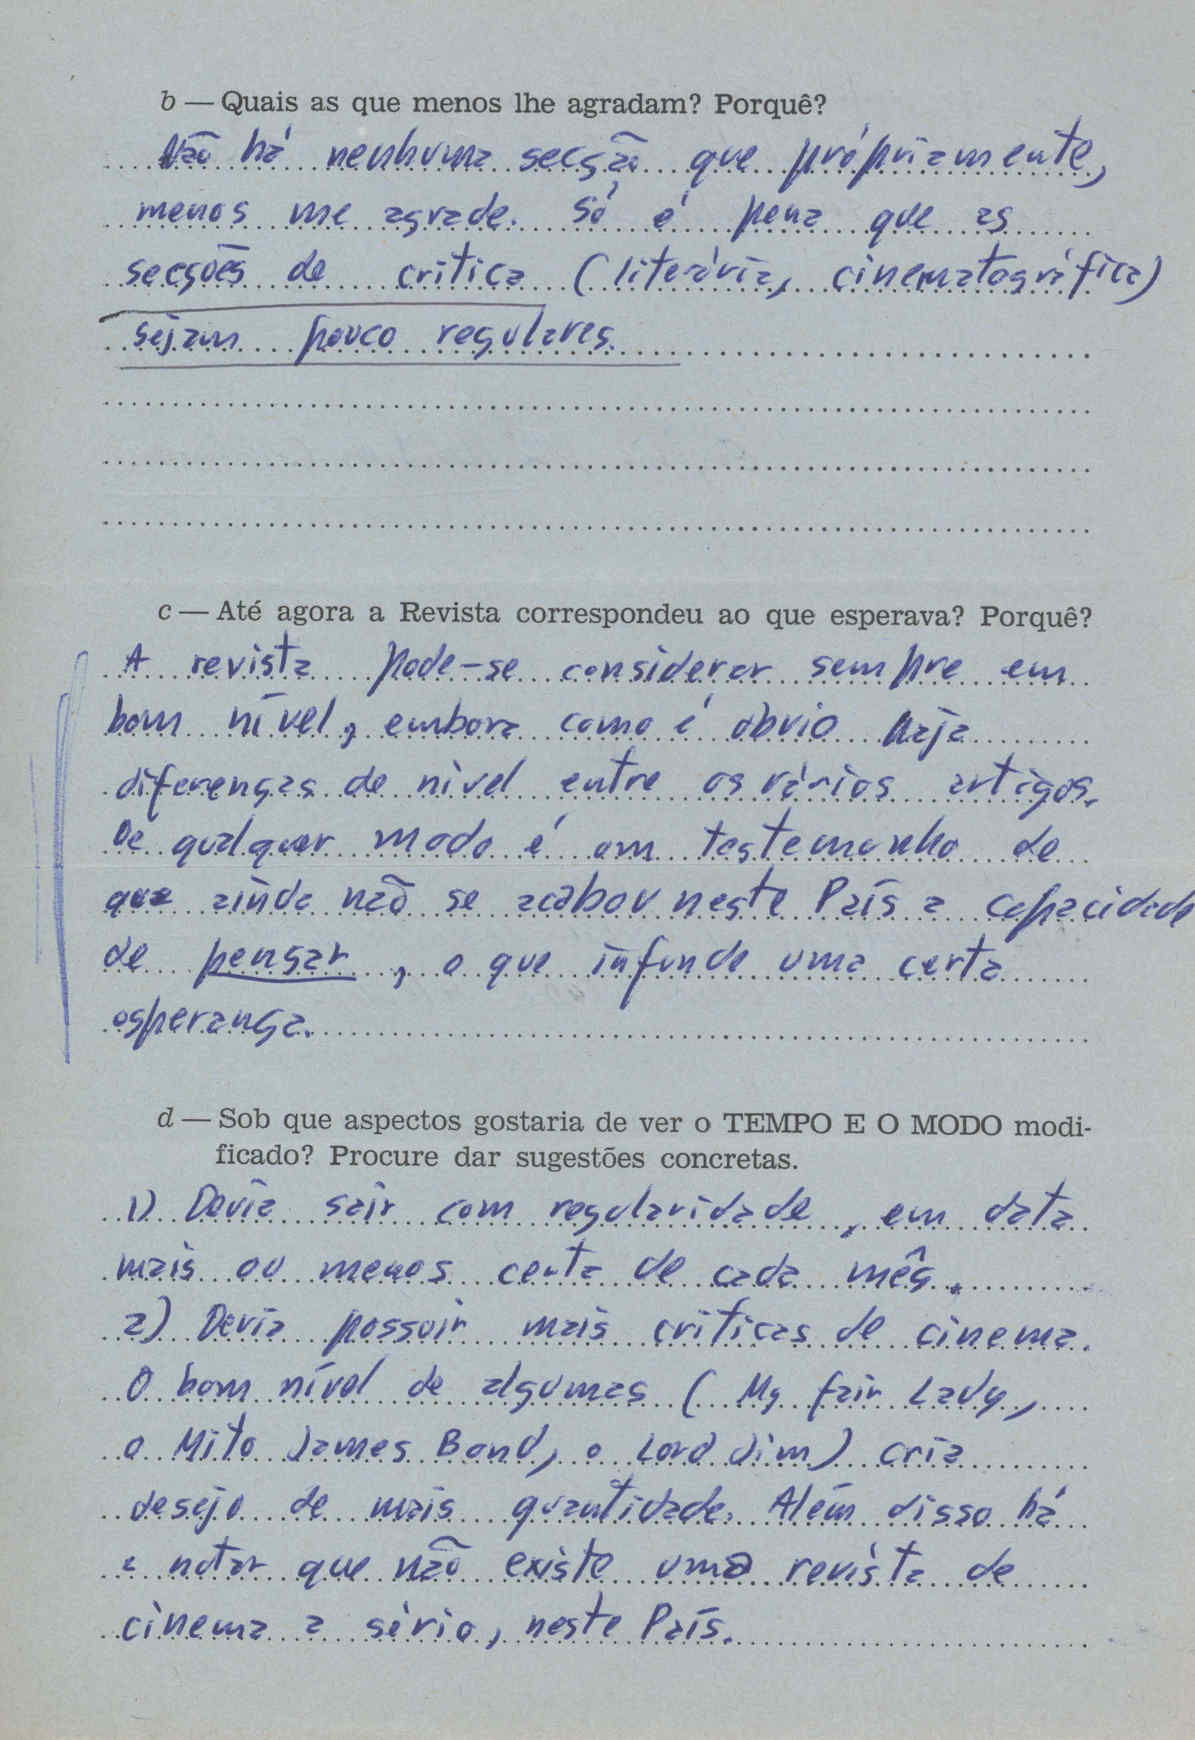 b — Quais as que menos lhe agradam? Porquê?
Não há nenhuma secção que própriamente,
menos me agrade. Só é pena que as
secções de critica (literária, cinematográfica)
sejam pouco regulares.
c — Até agora a Revista correspondeu ao que esperava? Porquê?
A revista pode-se considerar sempre em
bom nível, embora como é óbvio haja
diferenças de nível entre os vários artigos.
De qualquer modo é um testemunho de
que ainda não se acabou neste País a capacidade
de pensar, o que infunde uma certa
esperança.
d — Sob que aspectos gostaria de ver o TEMPO E O MODO modi-
ficado? Procure dar sugestões concretas.
1) Devia sair com regularidade, em data
mais ou menos certa de cada mês.
2) Devia possuir mais criticas de cinema.
O bom nível de algumas (My fair Lady,
o Mito James Bond, o Lord Jim) cria
desejo de mais quantidade. Além disso há
a notar que não existe uma revista de
cinema a sério, neste País.